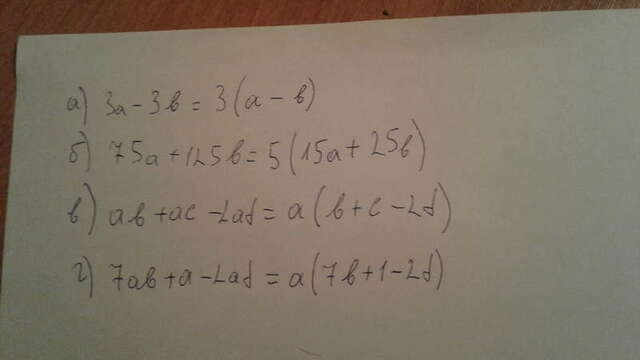 а) 3a - 3b = 3(a - b)
б) 75a + 125b = 5(15a + 25b)
в) ab + ac - 2ad = a(b + c - 2d)
г) 7ab + a - 2ad = a(7b + 1 - 2d)